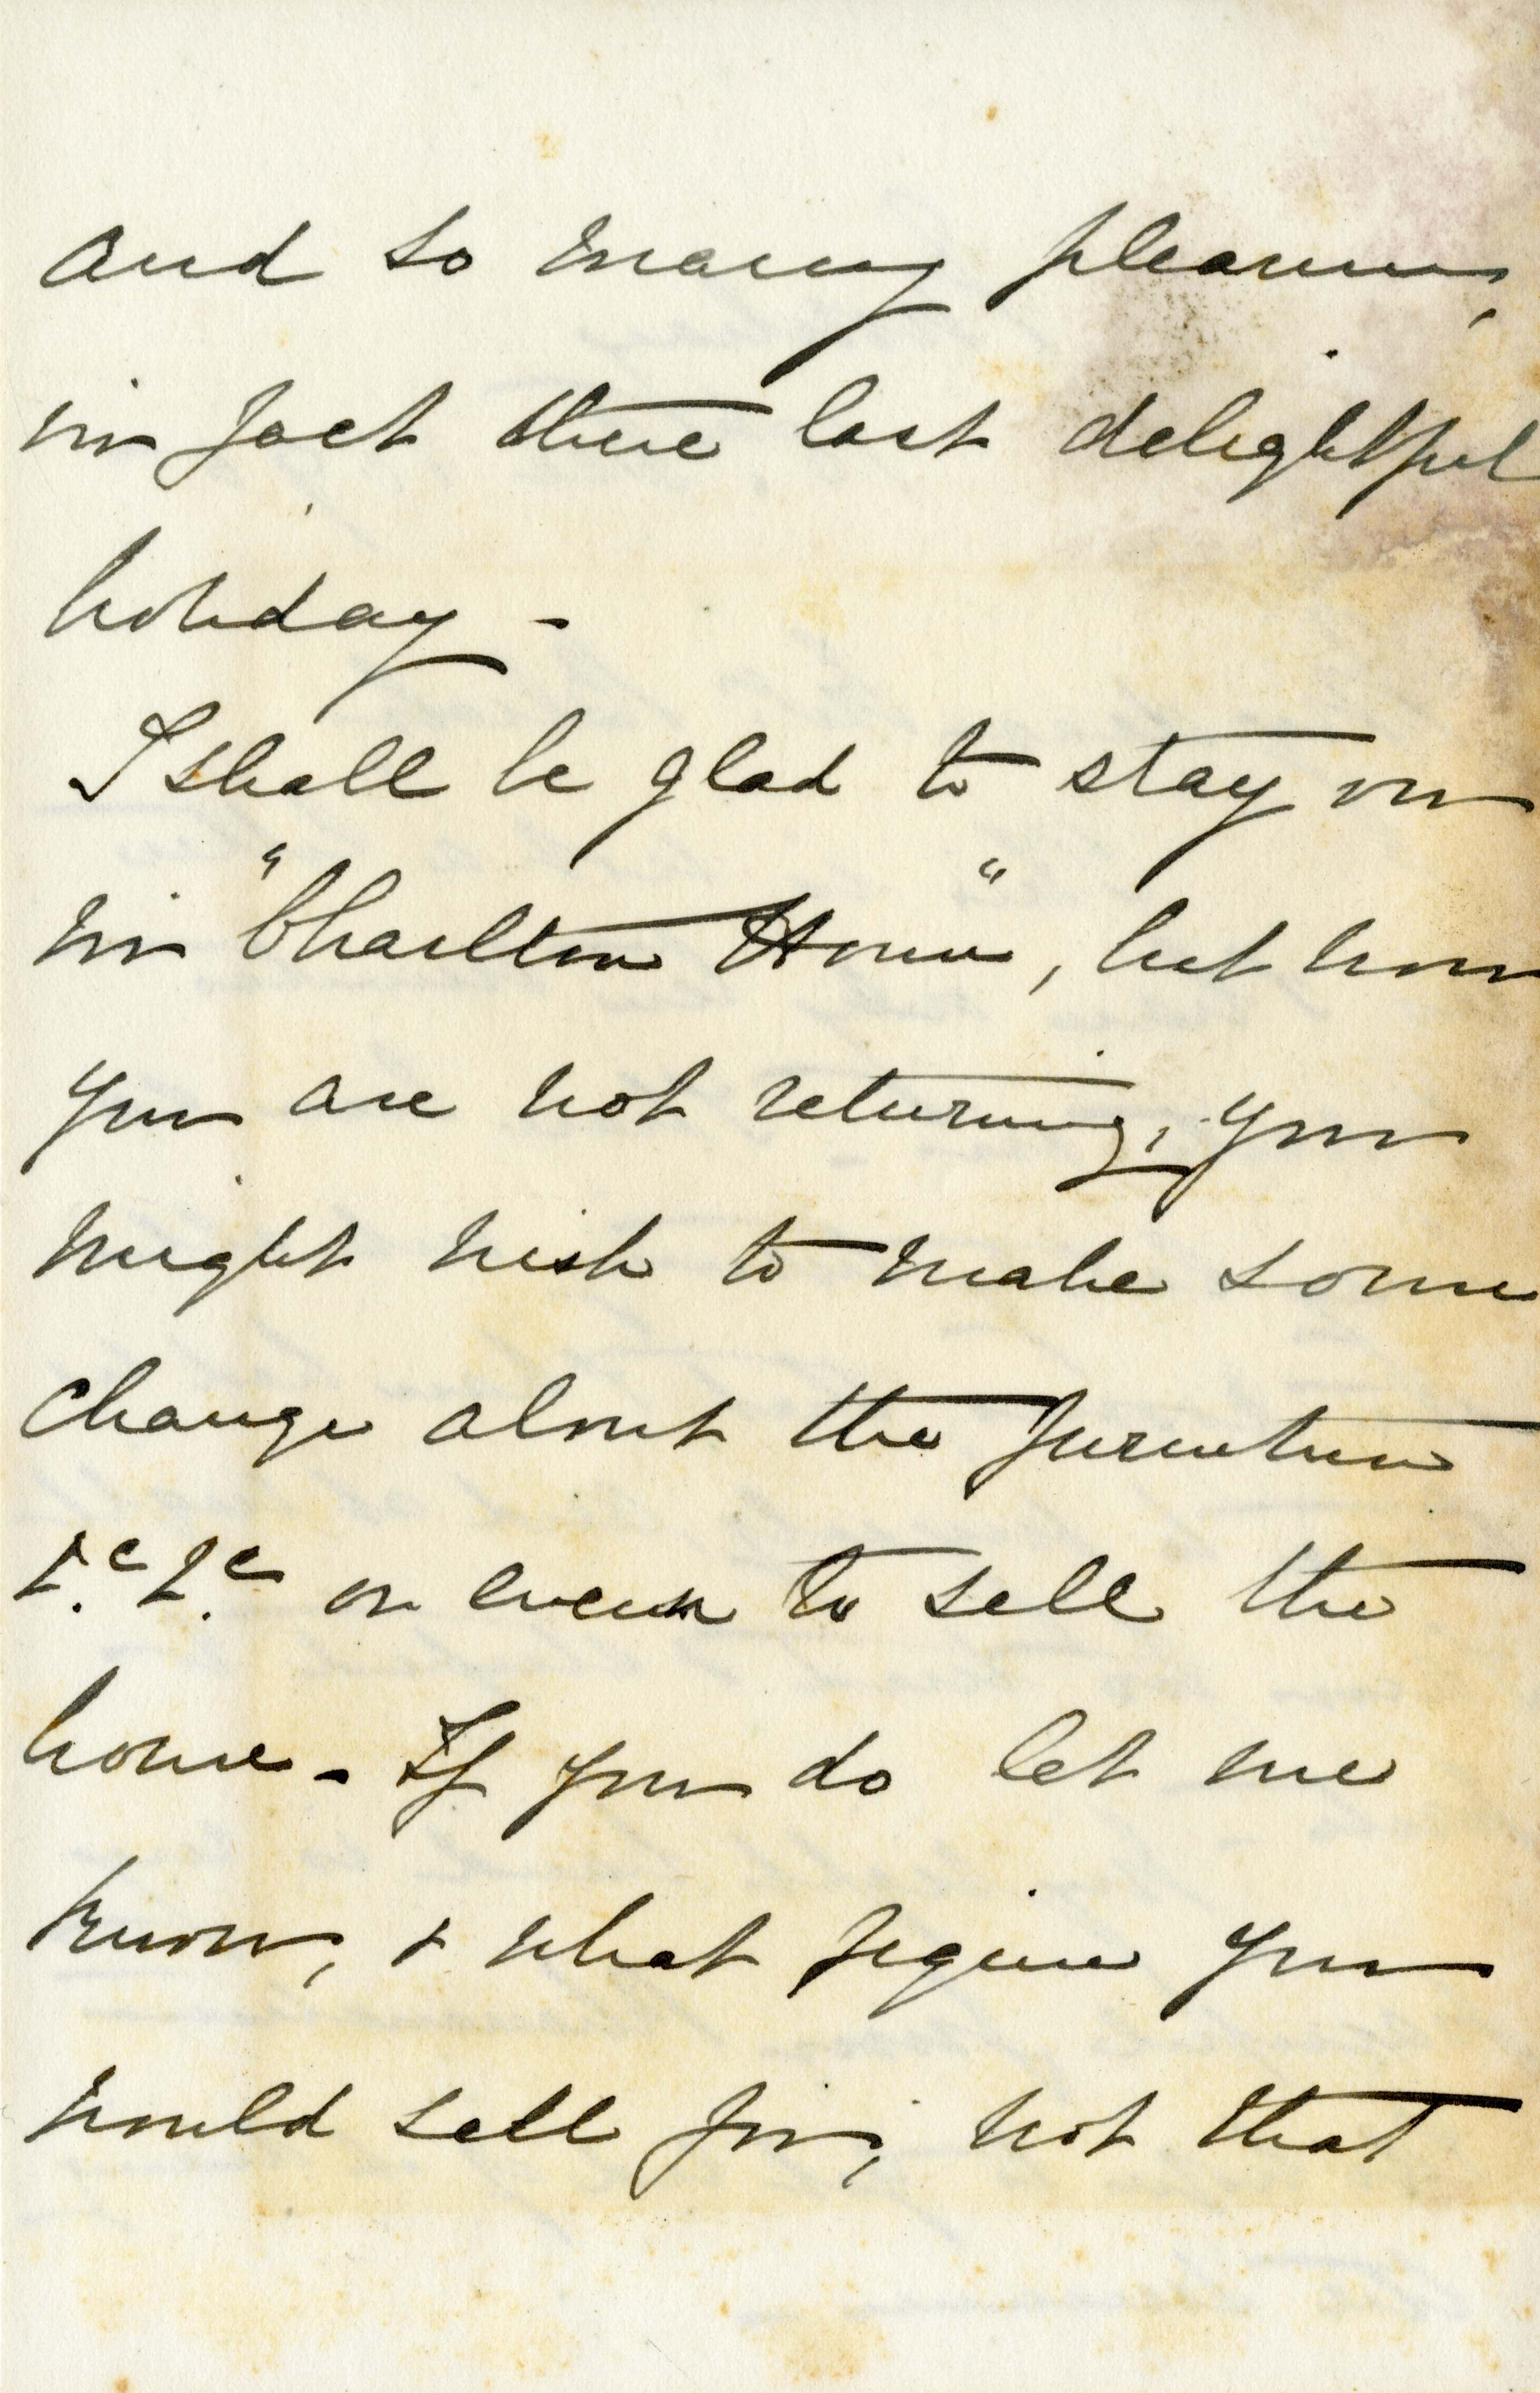 and so many pleasures,
in fact there last delightful
holiday -
I shall be glad to stay on
in "Charlton House", but now
you are not returning, you
might wish to make some
change about the furniture
&c. &c. or even to sell the
house - If you do let me
know, & what figure you
would sell for, not that